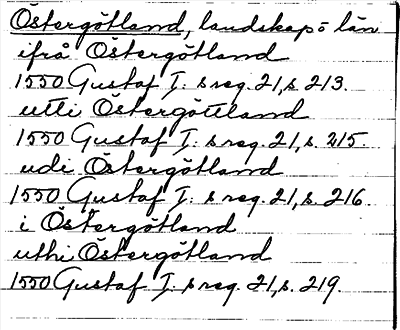 Östergötland, landskap o län
ifrå Östergötland
1550 Gustaf I: s reg. 21, s. 213.
utti Östergöttland
1550 Gustaf I: s reg. 21, s. 215.
udi Östergötland
1550 Gustaf I: s reg. 21, s. 216.
i Östergötland
uthi Östergötland
1550 Gustaf I: s reg. 21, s. 219.